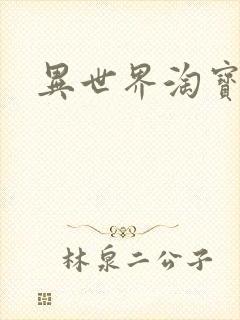 異世界淘寶
林泉二公子